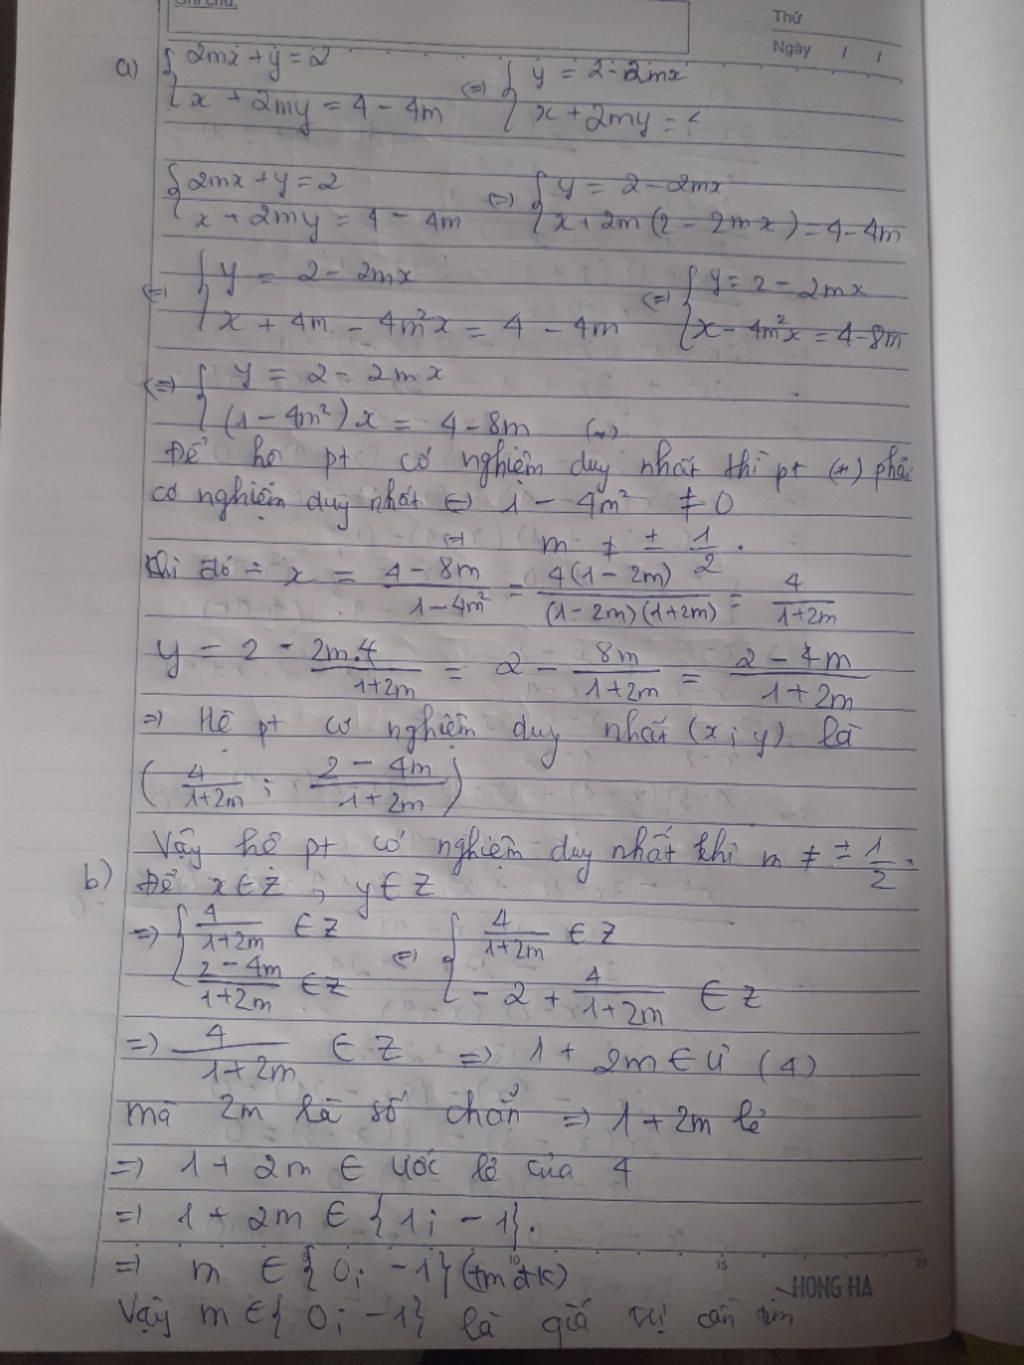 Ghi chú:
Thứ
Ngày / /
a) { 2mx + y = 2 (=) { y = 2 - 2mx
x + 2my = 4 - 4m x + 2my =
{ 2mx + y = 2 (=) { y = 2 - 2mx
x + 2my = 4 - 4m x + 2m (2 - 2mx) = 4 - 4m
(=) { y = 2 - 2mx (=) { y = 2 - 2mx
x + 4m - 4m²x = 4 - 4m x - 4m²x = 4 - 8m
(=) { y = 2 - 2mx
(1 - 4m²) x = 4 - 8m (*)
Để hệ pt có nghiệm duy nhất thì pt (*) phải
có nghiệm duy nhất (=) 1 - 4m² ≠ 0
(=) m ≠ ± 1/2 .
Khi đó = x = (4 - 8m)/(1 - 4m²) = 4(1 - 2m)/((1 - 2m)(1 + 2m)) = 4/(1+2m)
y = 2 - 2m.4/(1+2m) = 2 - 8m/(1+2m) = (2 - 4m)/(1+2m)
=) Hệ pt có nghiệm duy nhất (x ; y) là
( 4/(1+2m) ; (2 - 4m)/(1+2m) )
Vậy hệ pt có nghiệm duy nhất khi m ≠ ± 1/2 .
b) Để x ∈ Z , y ∈ Z
=) { 4/(1+2m) ∈ Z (=) { 4/(1+2m) ∈ Z
(2 - 4m)/(1+2m) ∈ Z - 2 + 4/(1+2m) ∈ Z
=) 4/(1+2m) ∈ Z =) 1 + 2m ∈ Ư (4)
mà 2m là số chẵn =) 1 + 2m lẻ
=) 1 + 2m ∈ ước lẻ của 4
=) 1 + 2m ∈ {1; -1}.
=) m ∈ {0; -1} (tm đk)
10 15 20
HONG HA
Vậy m ∈ { 0; -1} là giá trị cần tìm